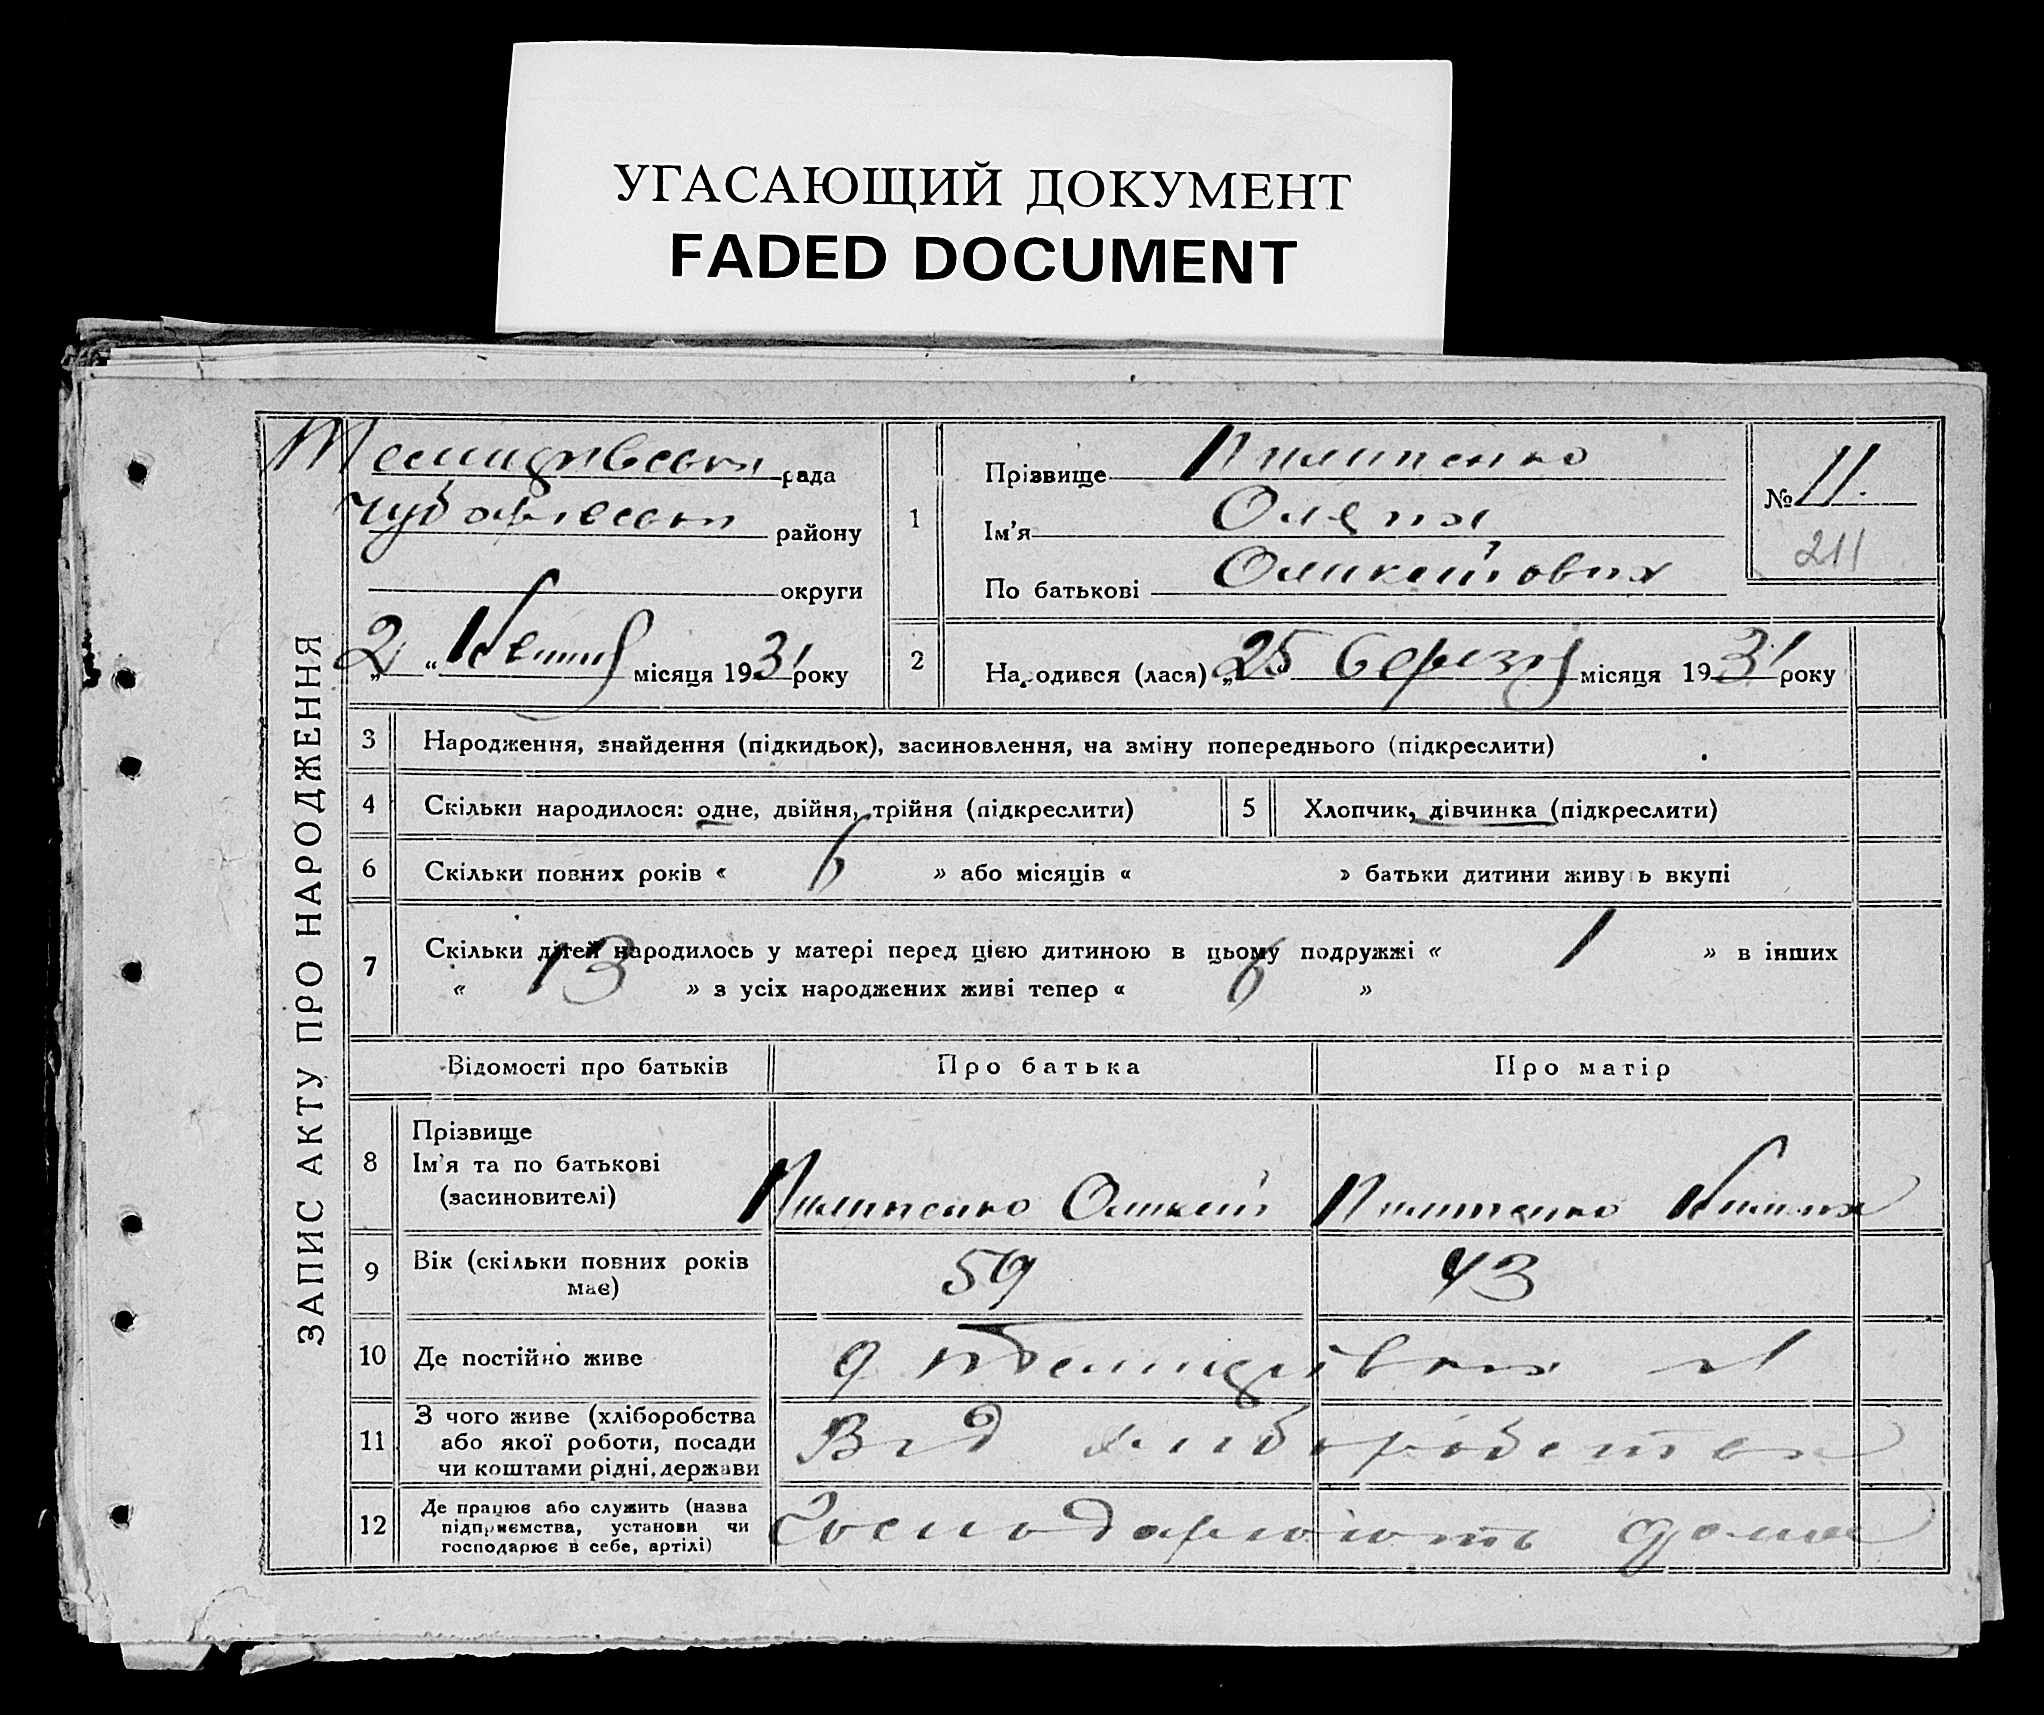 УГАСАЮЩИЙ ДОКУМЕНТ
FADED DOCUMENT
ЗАПИС АКТУ ПРО НАРОДЖЕННЯ
рада
району
округи
„2“ Квітня місяця 1931 року
1
Прізвище Пилипенко
Ім'я Олена
По батькові
№ 11.
211
2
Народився (лася) „25 березня місяця 1931 року
3 Народження, знайдення (підкидьок), засиновлення, на зміну попереднього (підкреслити)
4 Скільки народилося: одне, двійня, трійня (підкреслити)
5 Хлопчик, дівчинка (підкреслити)
6 Скільки повних років « 6 » або місяців « » батьки дитини живуть вкупі
7 Скільки дітей народилось у матері перед цією дитиною в цьому подружжі « 1 » в інших
« 13 » з усіх народжених живі тепер « 6 »
Відомості про батьків Про батька Про матір
8 Прізвище
Ім'я та по батькові
(засиновителі)
Пилипенко Пилипенко
9 Вік (скільки повних років
має)
59 43
10 Де постійно живе
11 З чого живе (хліборобства
або якої роботи, посади
чи коштами рідні, держави
Від хлиборобства
12 Де працює або служить (назва
підприємства, установи чи
господарює в себе, артілі)
Господарюють дома